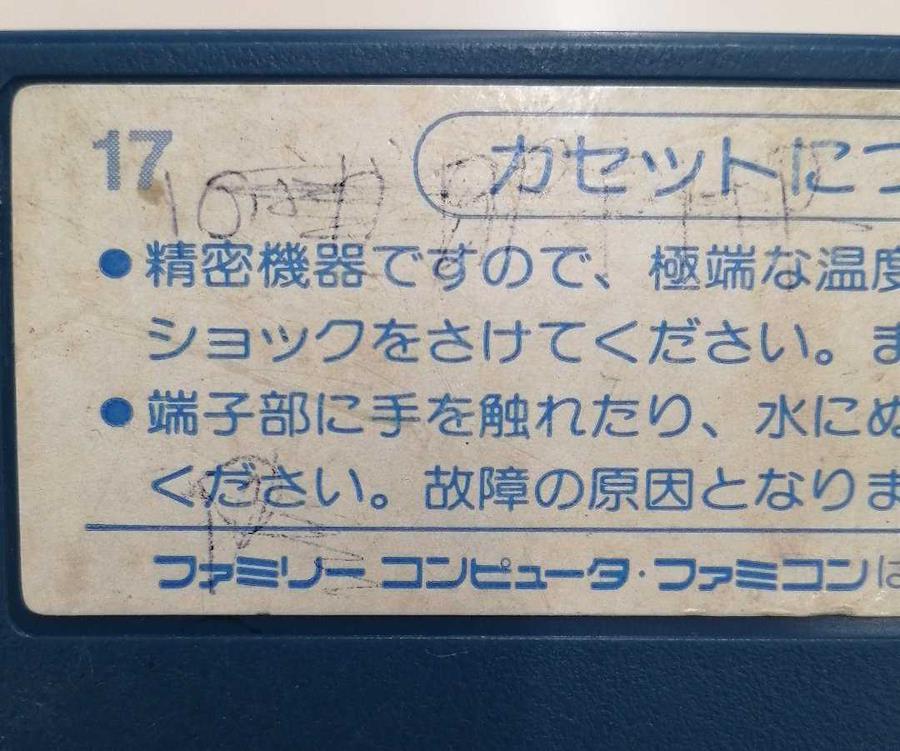 17
カセットにつ
●精密機器ですので、極端な温度
ショックをさけてください。ま
●端子部に手を触れたり、水にぬ
ください。故障の原因となりま
ファミリー コンピュータ・ファミコンは